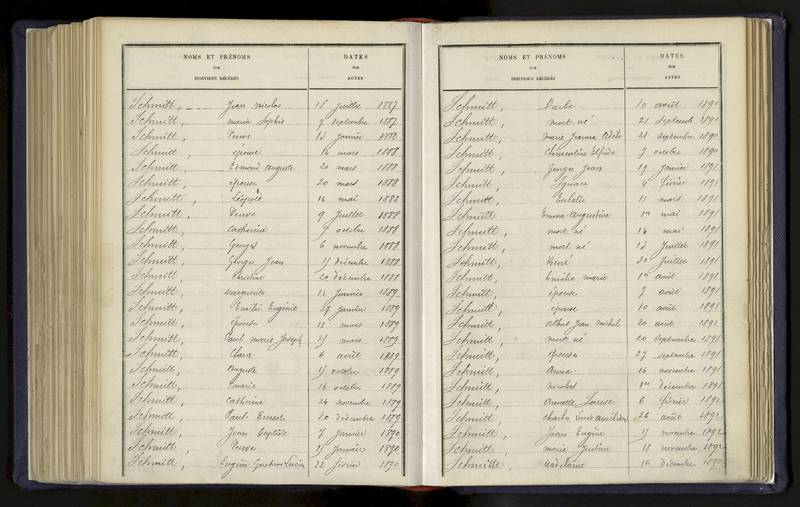 NOMS ET PRÉNOMS DATES
des des
INDIVIDUS DÉCÉDÉS ACTES
Schmitt, Jean Nicolas 18 juillet 1887
Schmitt, Marie Sophie 7 septembre 1887
Schmitt, Veuve 13 janvier 1888
Schmitt, épouse 14 mars 1888
Schmitt, Edmond Auguste 20 mars 1888
Schmitt, épouse 20 mars 1888
Schmitt, Léopold 16 mai 1888
Schmitt, Veuve 9 juillet 1888
Schmitt, Catherine 9 octobre 1888
Schmitt, Georges 6 novembre 1888
Schmitt, Georges Jean 15 décembre 1888
Schmitt Christine 20 décembre 1888
Schmitt, Marguerite 11 janvier 1889
Schmitt, Emilie Eugénie 27 janvier 1889
Schmitt, épouse 11 mars 1889
Schmitt, Paul Marie Joseph 25 mars 1889
Schmitt, Clara 6 août 1889
Schmitt, Auguste 15 octobre 1889
Schmitt, Marie 16 octobre 1889
Schmitt, Catherine 24 novembre 1889
Schmitt, Paul Ernest 20 décembre 1889
Schmitt, Jean Baptiste 7 janvier 1890
Schmitt, Veuve 15 janvier 1890
Schmitt, Eugène Gustave Lucien 22 février 1890
NOMS ET PRÉNOMS DATES
des des
INDIVIDUS DÉCÉDÉS ACTES
Schmitt, 10 août 1890
Schmitt, mort né 21 septembre 1890
Schmitt, Marie Jeanne Adèle 21 septembre 1890
Schmitt, Clémentine Elfride 7 octobre 1890
Schmitt, Georges Jean 19 janvier 1891
Schmitt, Ignace 4 février 1891
Schmitt, Eulalie 11 mars 1891
Schmitt Emma Augustine 1er mai 1891
Schmitt, mort né 14 mai 1891
Schmitt, mort né 13 juillet 1891
Schmitt, René 20 juillet 1891
Schmitt, Emilie Marie 1er août 1891
Schmitt, épouse 7 août 1891
Schmitt, épouse 10 août 1891
Schmitt, Albert Jean Michel 20 août 1891
Schmitt, mort né 20 septembre 1891
Schmitt, épouse 27 septembre 1891
Schmitt, Anna 16 novembre 1891
Schmitt, Nicolas 1er décembre 1891
Schmitt, Louise 6 février 1892
Schmitt, Charles Louis Aurélien 26 août 1892
Schmitt, Jean Eugène 15 novembre 1892
Schmitt, Marie Justine 18 novembre 1892
Schmitt, Madeleine 16 décembre 1890